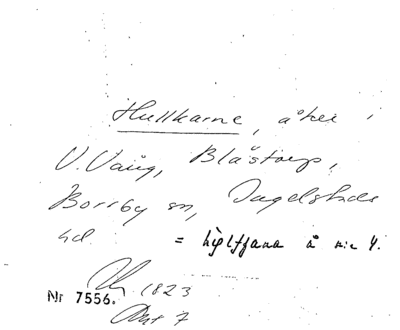 Hullkarne, åker i
V. Vång, Blåstorp,
Borrby sn, Ingelstads
hd. = å nr 4.
1823
Nr 7556.
Akt 7